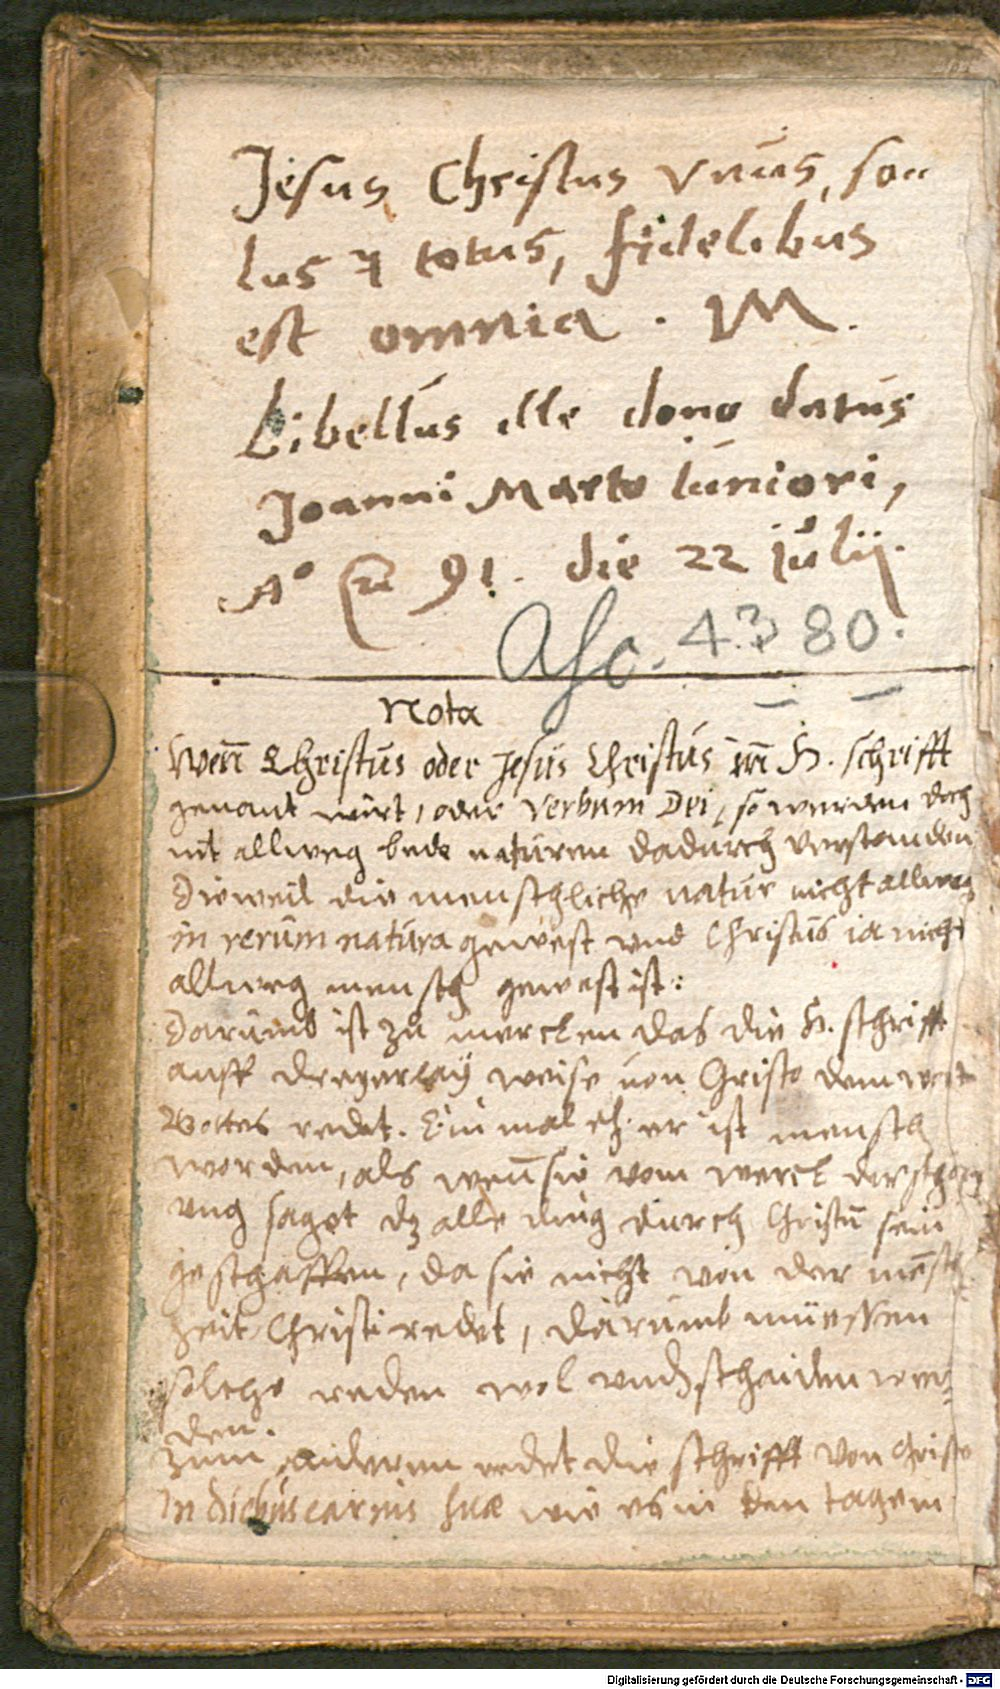 Jesus Christus vnus, so„
lus & totus, fidelibus
est omnia. IM.
Libellus ille dono datus
Joanni Marto iuniori,
Aº 91. die 22 iulij.
Asc. 4380.
Nota
Wen̄ Christus oder Jesus Christus inn H. schrifft
genant wirt, oder Verbum Dei, so werden doch
nit allweg bede naturen dadurch verstanden
Dieweil die menschliche natur nicht allweg
in rerum natura gewest vnd Christus ia nicht
allweg mensch gewest ist:
Darumb ist zu mercken das die H. schrifft
auff dreyerlay weise von Christo dem wort
Gottes redet. Ein mal eh er ist mensch
worden, als wen̄ sie vom werck der schöpf
ung saget dz alle ding durch Christū sein
geschaffen, da sie nicht von der mēsch
heit Christi redet, darumb müessen
solche reden wol vnd'schaiden wer„
den.
Zum anderen redet die schrifft von Christo
In diebus carnis suæ wie es in den tagen
Digitalisierung gefördert durch die Deutsche Forschungsgemeinschaft - DFG